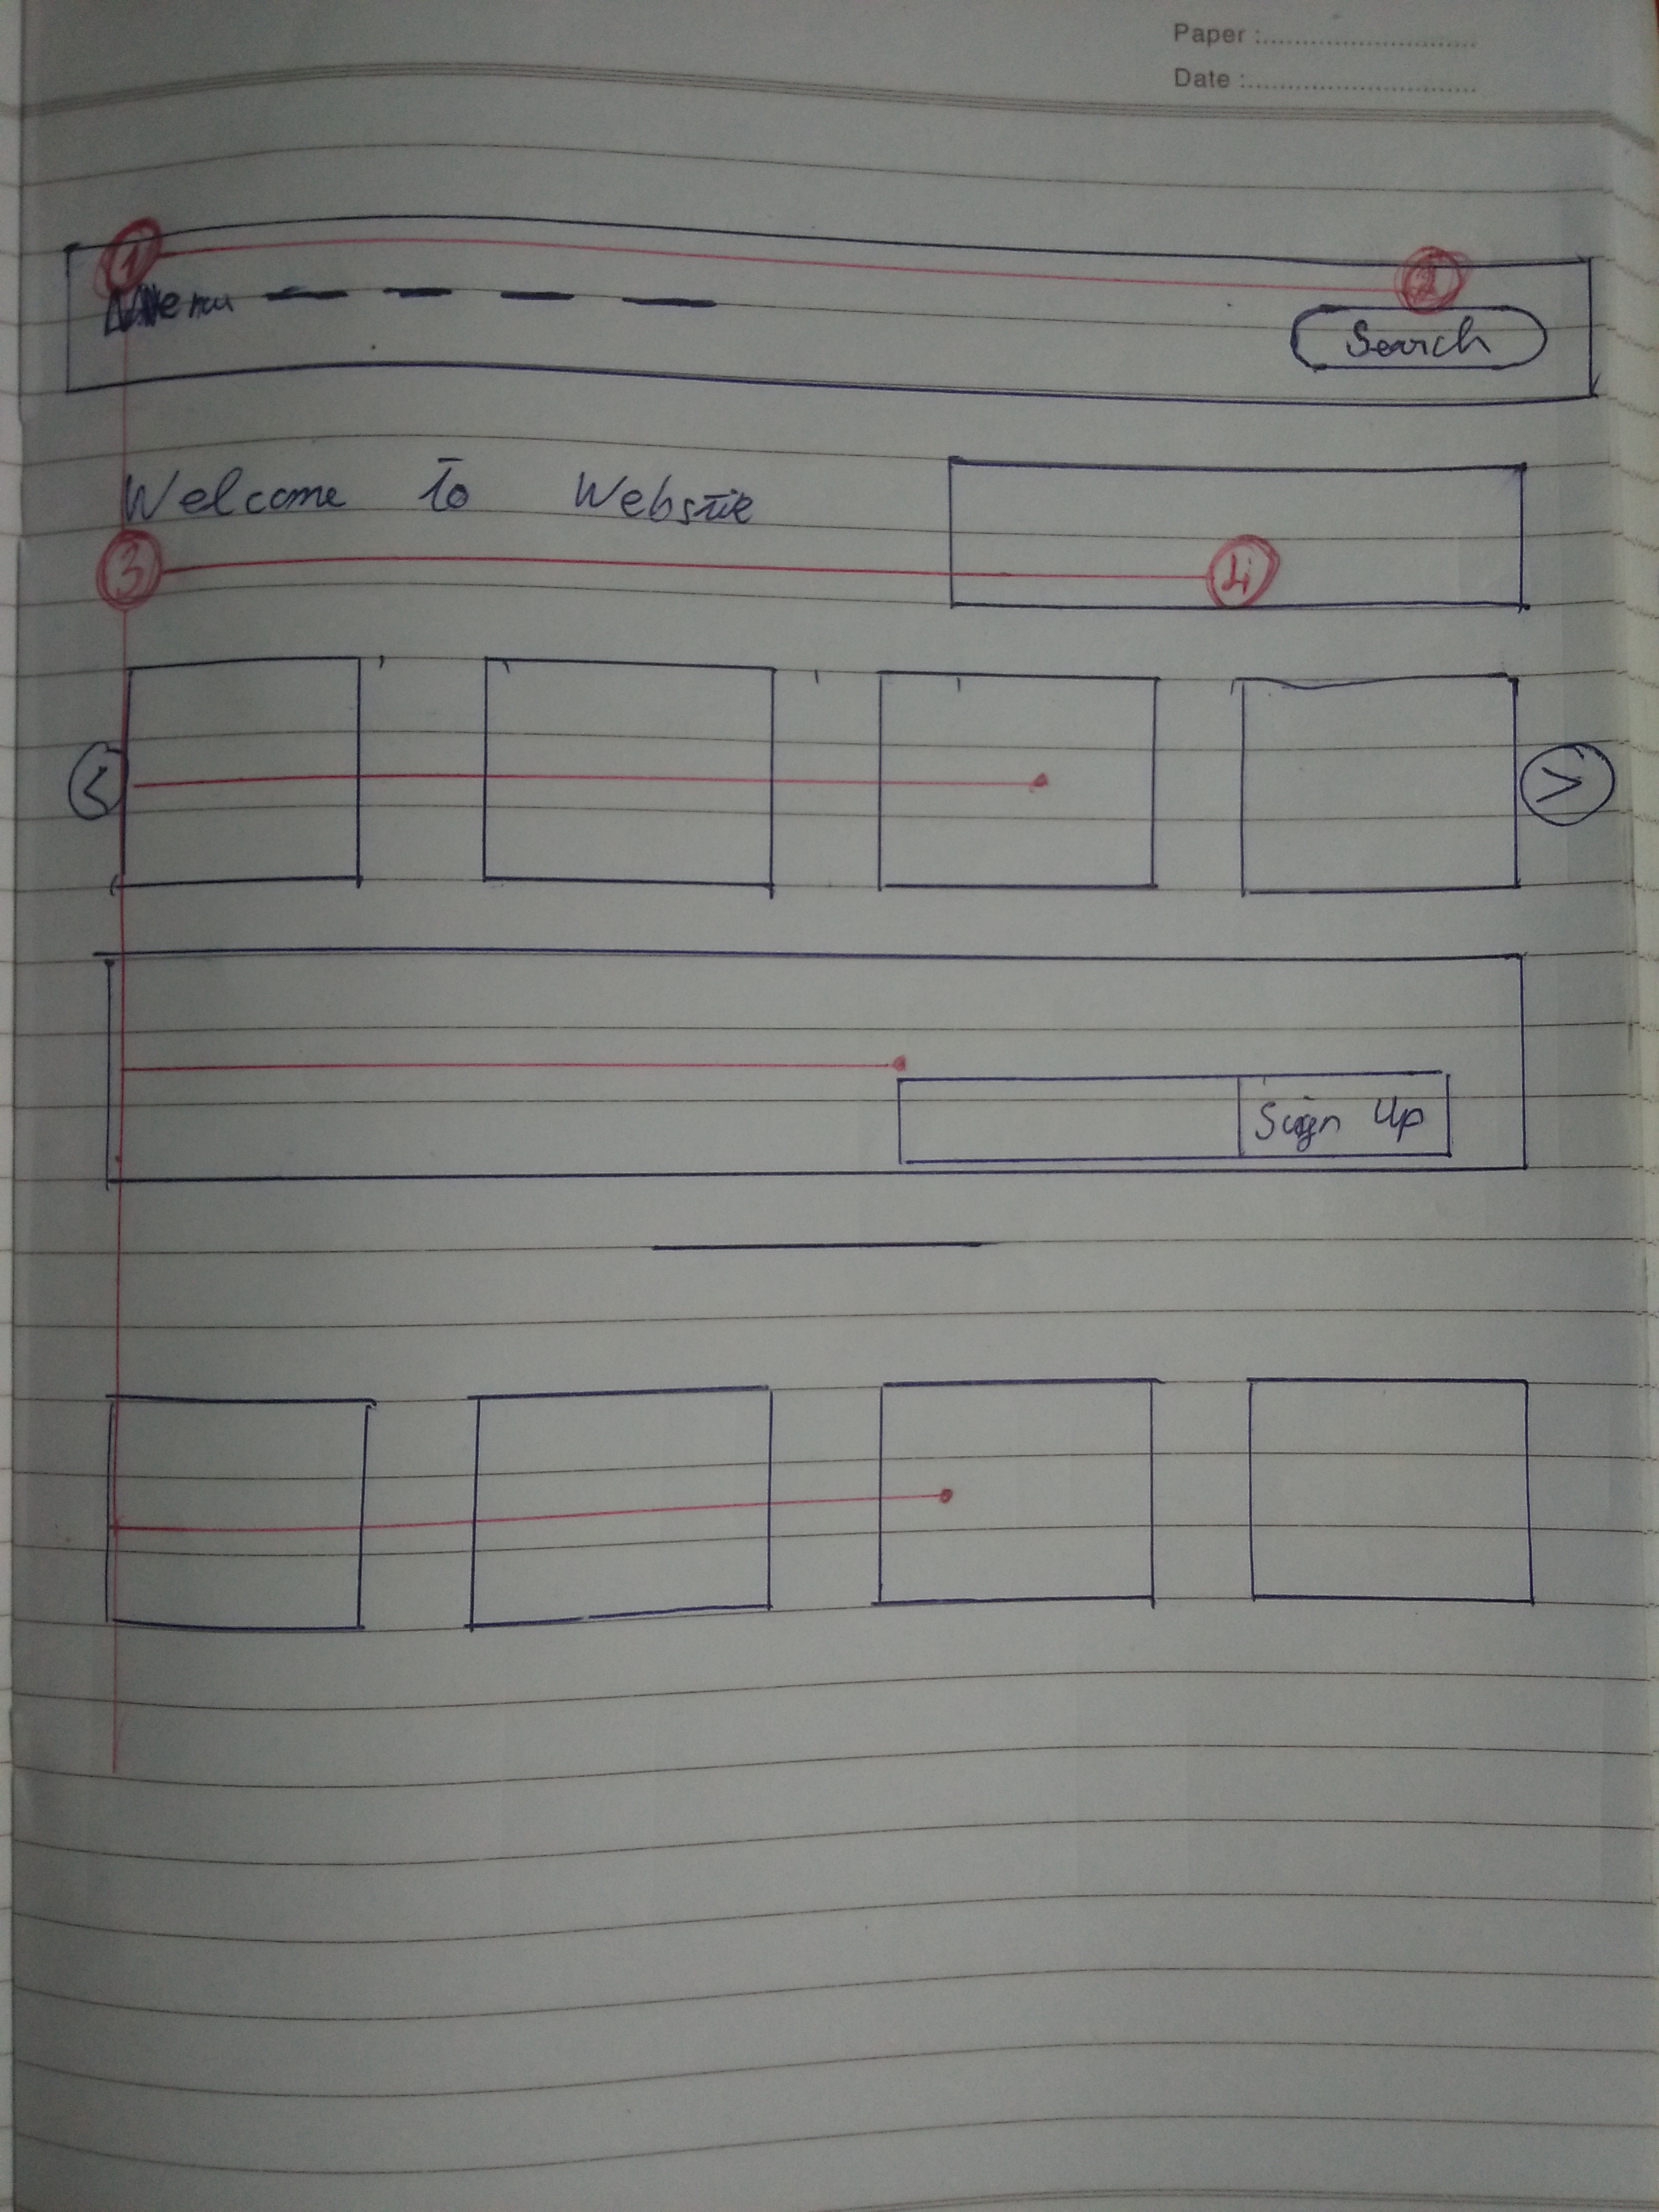 Paper :
Date :
1
2
Menu
Search
Welcome To Website
3
4
<
>
Sign Up